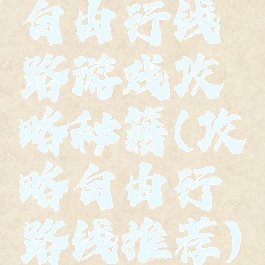 自由行线
路游戏攻
略秘籍(攻
略自由行
路线推荐)